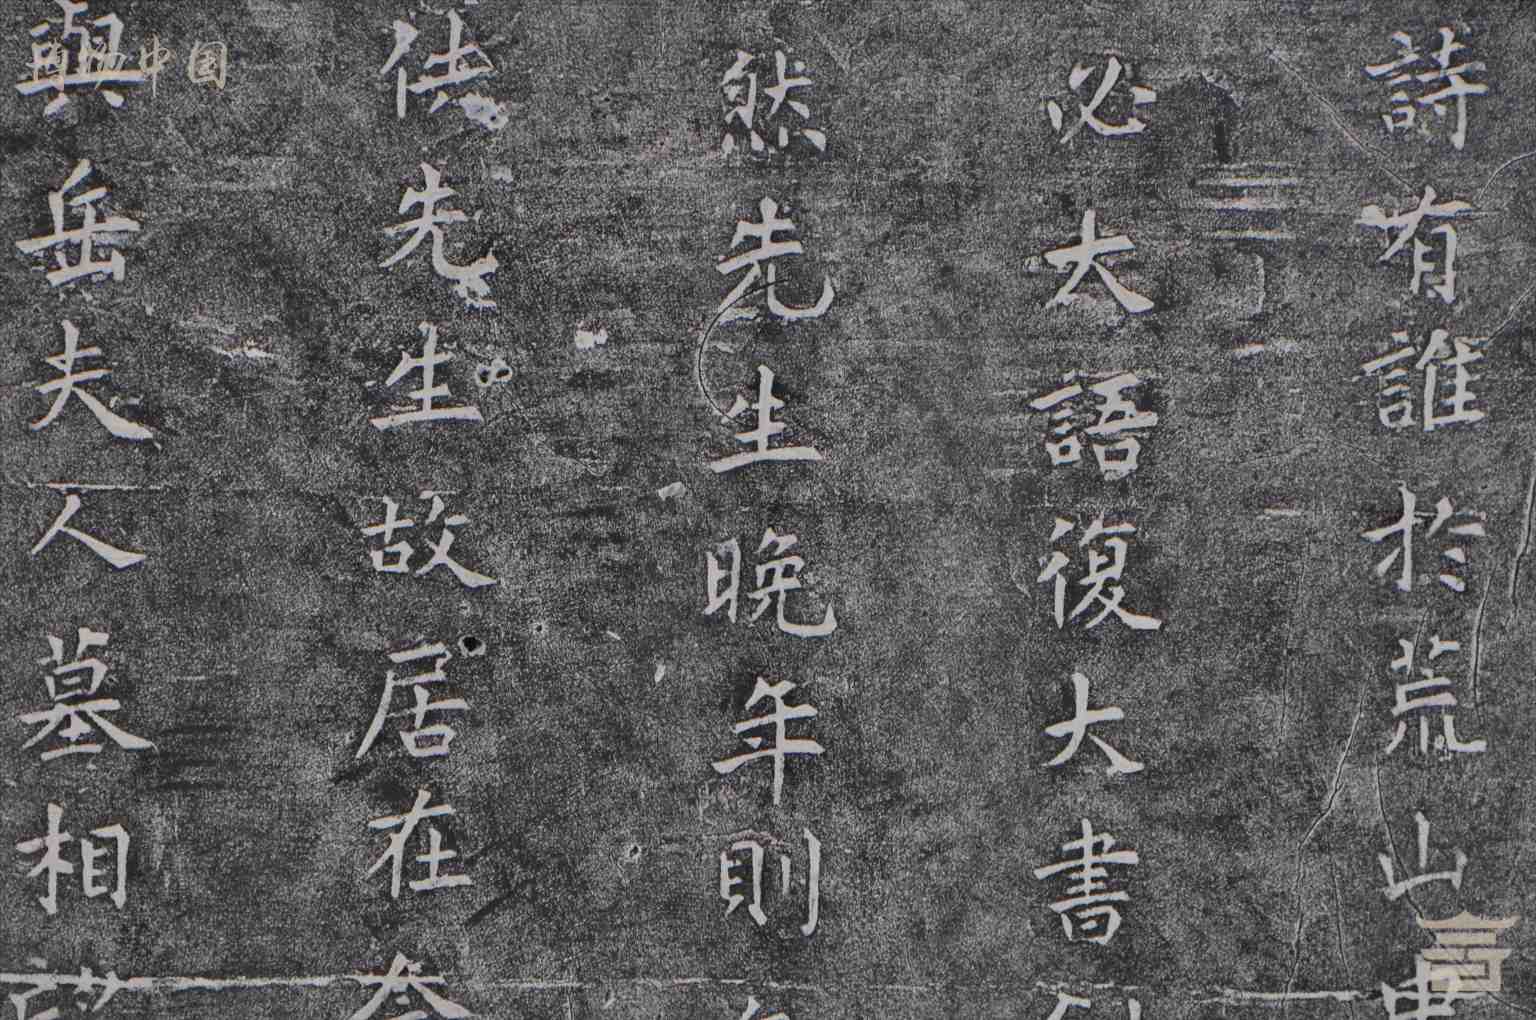 詩有誰於荒山申
必大語復大書
然先生晚年則
供先生故居在叄
與岳夫人墓相